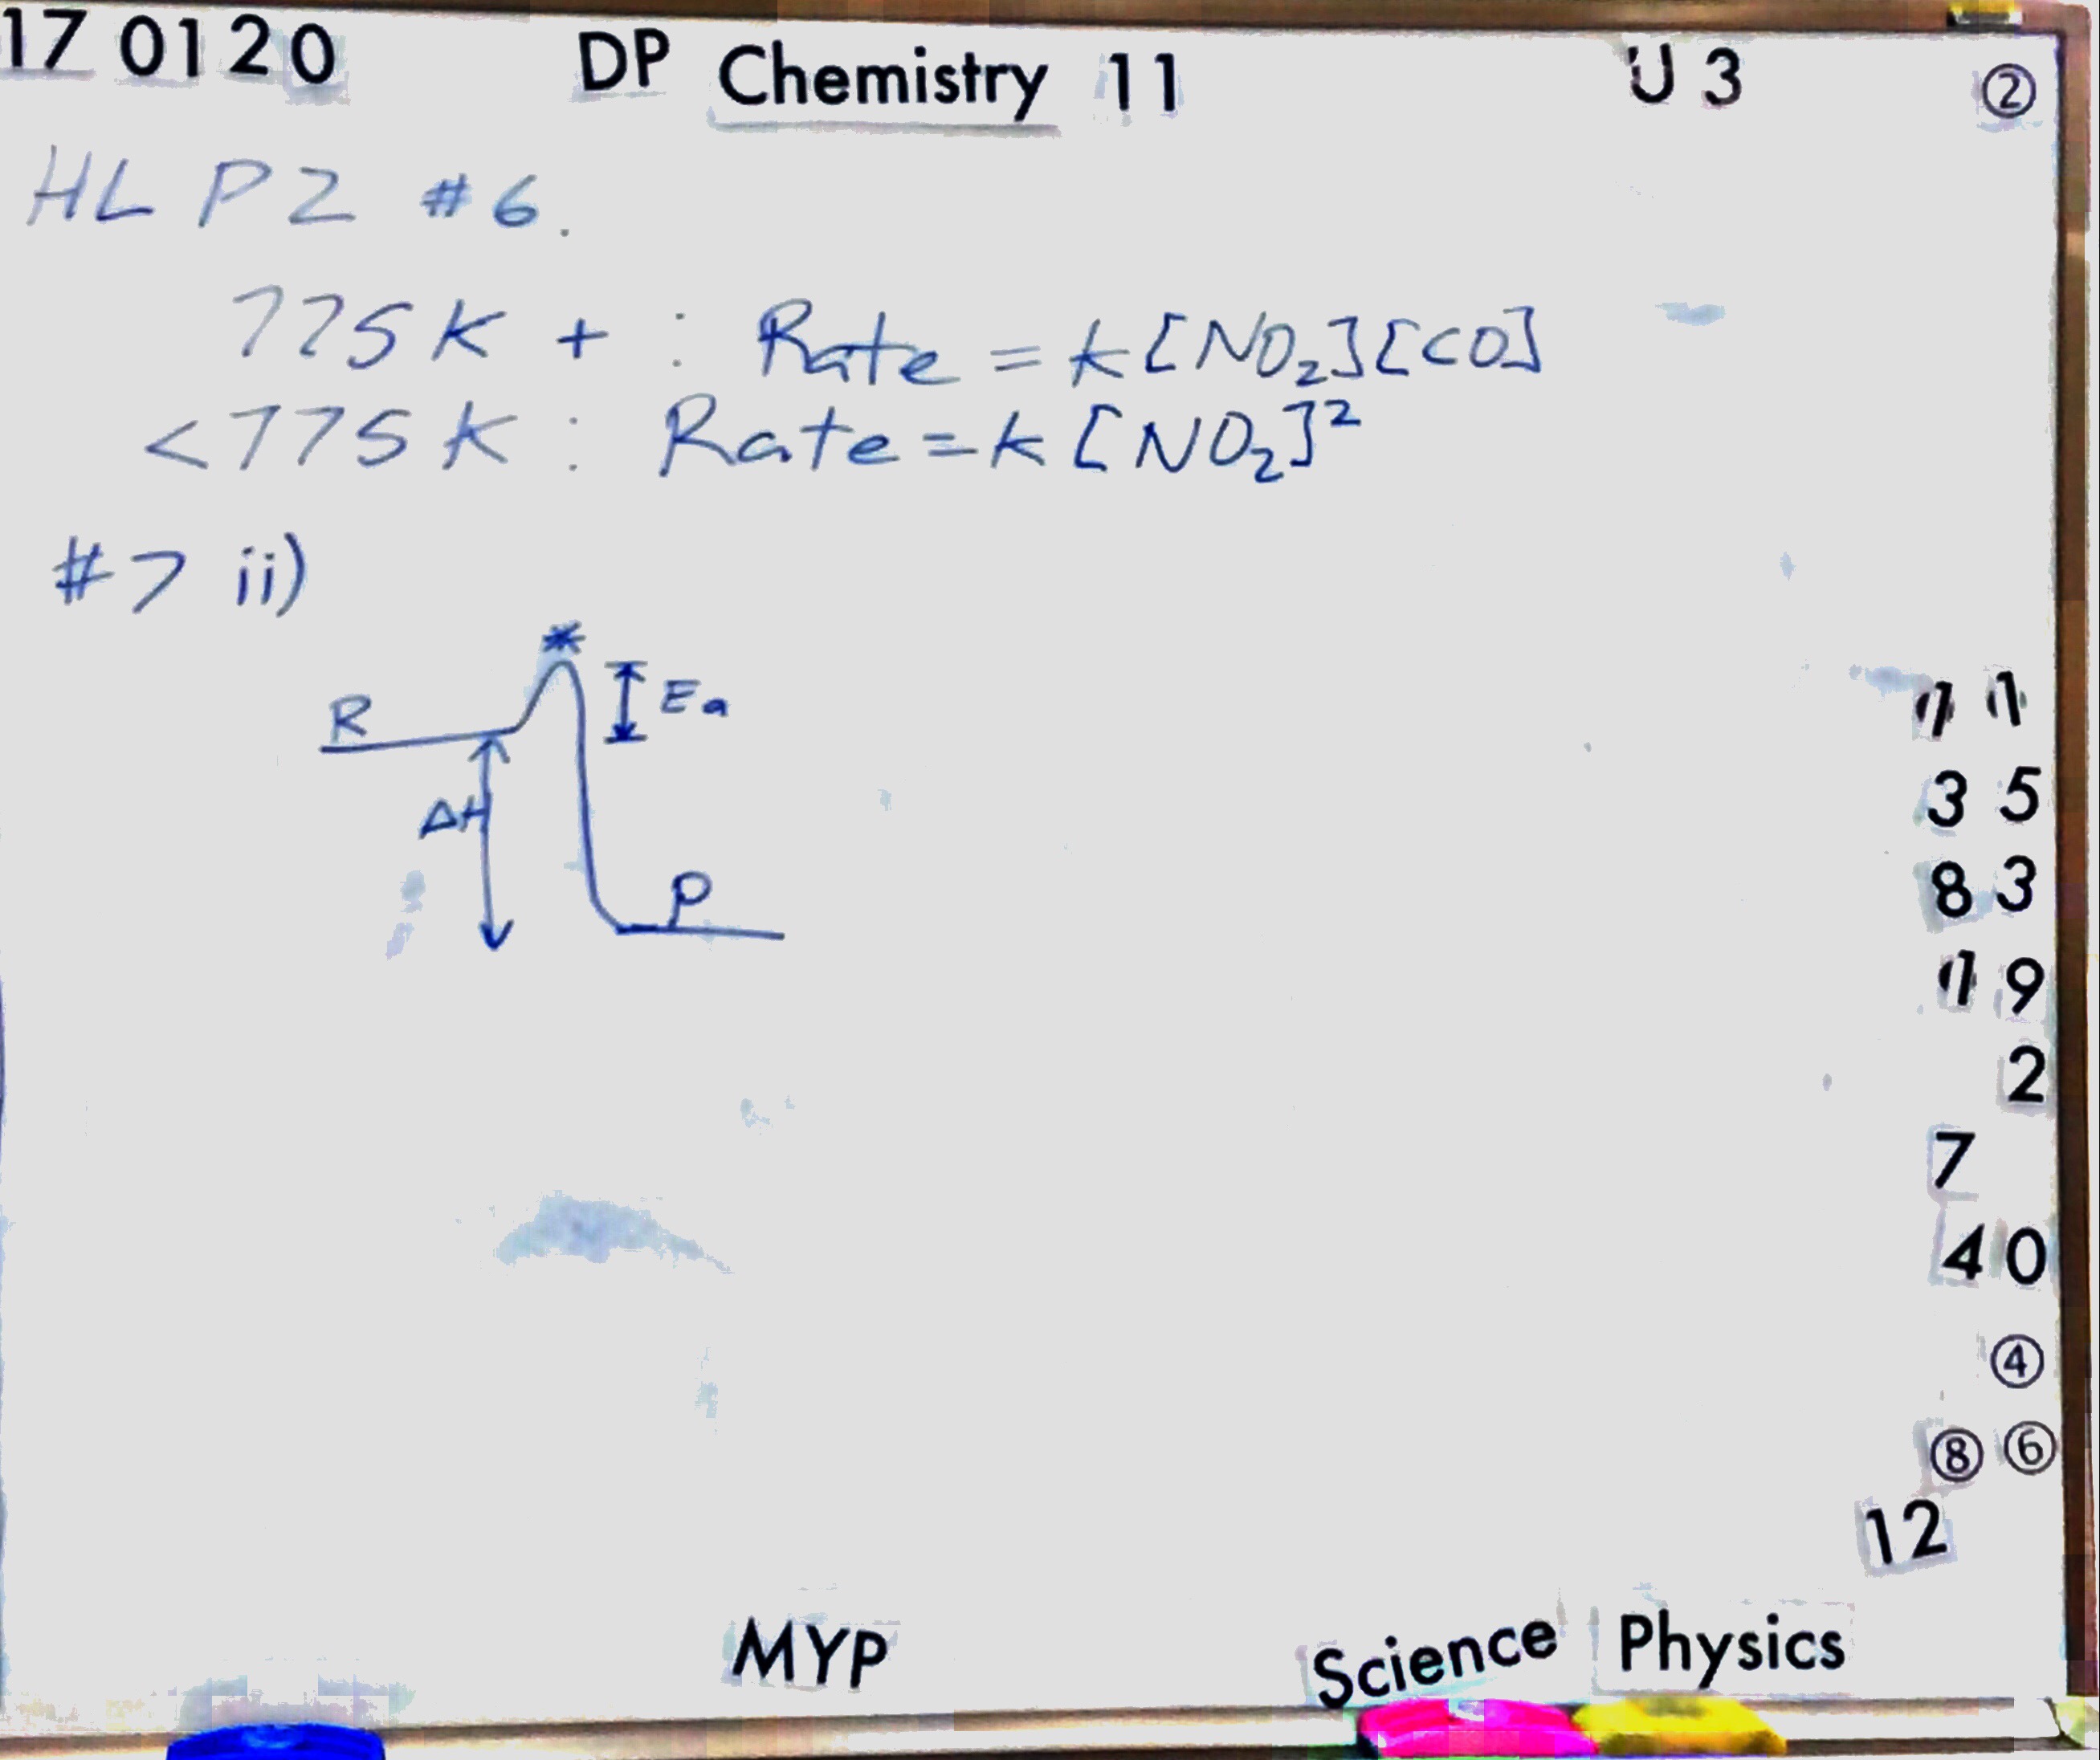 17 0120 DP Chemistry 11 U 3 ②
HL P2 #6.
775K + : Rate = k[NO₂][CO]
<775K : Rate = k[NO₂]²
#7 ii)
*
R
Ea
ΔH
P
1 1
3 5
8 3
1 9
2
7
4 0
④
⑧ ⑥
12
MYP Science Physics